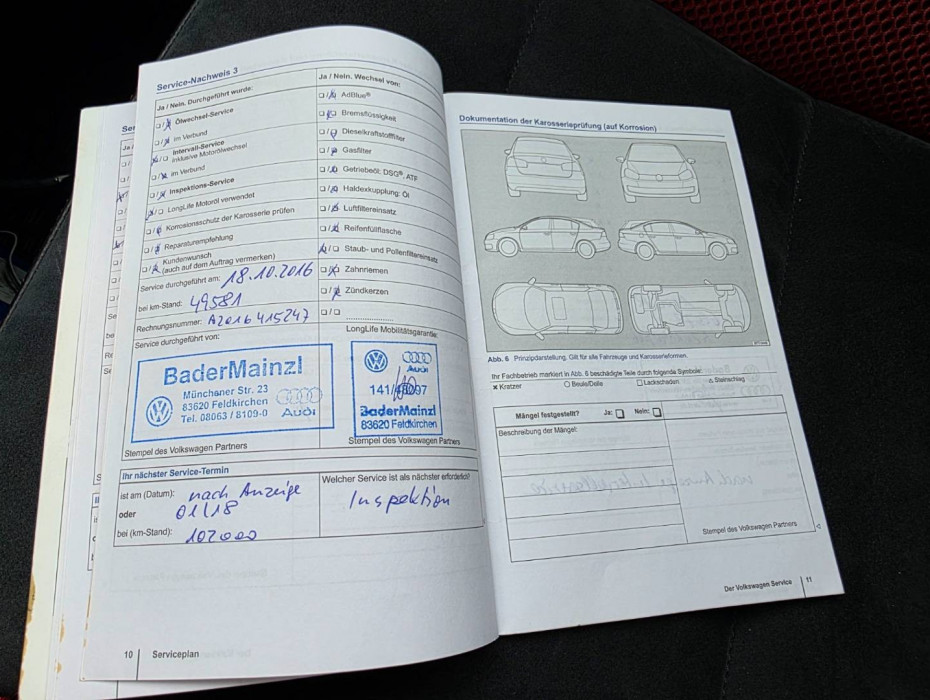 Service-Nachweis 3
Ja / Nein. Durchgeführt wurde:
Ölwechsel-Service
im Verbund
Intervall-Service
inklusive Motorölwechsel
im Verbund
Inspektions-Service
LongLife Motoröl verwendet
Korrosionsschutz der Karosserie prüfen
Reparaturempfehlung
Kundenwunsch
(auch auf dem Auftrag vermerken)
Service durchgeführt am: 18.10.2016
bei km-Stand: 49581
Rechnungsnummer: A2016415247
Service durchgeführt von:
BaderMainzl
Münchener Str. 23
83620 Feldkirchen
Tel. 08063 / 8109-0
Audi
Stempel des Volkswagen Partners
Ja / Nein. Wechsel von:
AdBlue®
Bremsflüssigkeit
Dieselkraftstofffilter
Gasfilter
Getriebeöl: DSG®, ATF
Haldexkupplung: Öl
Luftfiltereinsatz
Reifenfüllflasche
Staub- und Pollenfiltereinsatz
Zahnriemen
Zündkerzen
LongLife Mobilitätsgarantie:
Audi
BaderMainzl
83620 Feldkirchen
Stempel des Volkswagen Partners
Ihr nächster Service-Termin
ist am (Datum): nach Anzeige
oder 01/18
bei (km-Stand): 102000
Welcher Service ist als nächster erforderlich?
Inspektion
10 Serviceplan
Dokumentation der Karosserieprüfung (auf Korrosion)
Abb. 6 Prinzipdarstellung. Gilt für alle Fahrzeuge und Karosserieformen.
Ihr Fachbetrieb markiert in Abb. 6 beschädigte Teile durch folgende Symbole:
x Kratzer O Beule/Delle □ Lackschaden ▵ Steinschlag
Mängel festgestellt? Ja: □ Nein: □
Beschreibung der Mängel:
Stempel des Volkswagen Partners
Der Volkswagen Service 11